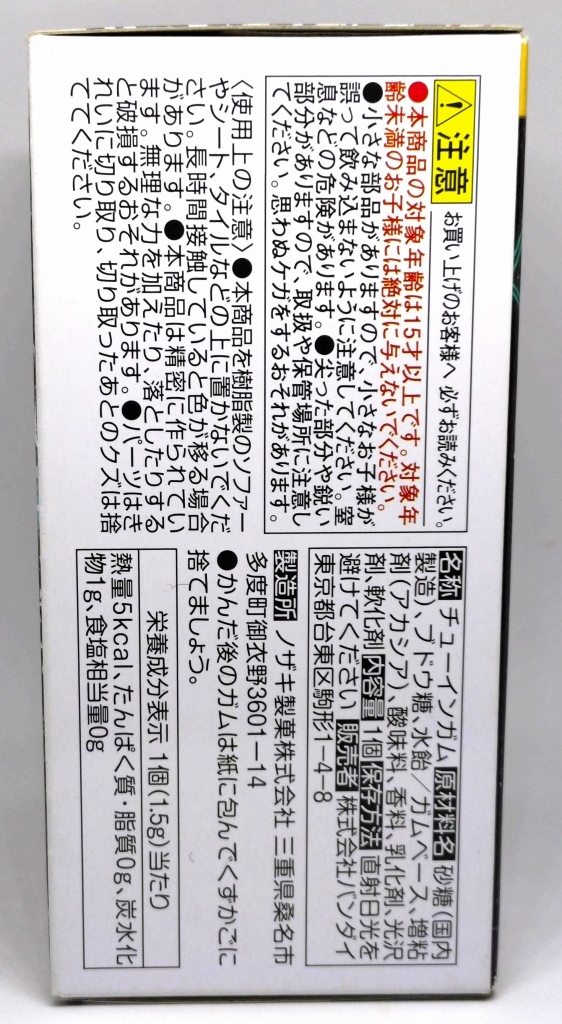 注意 お買い上げのお客様へ 必ずお読みください。
●本商品の対象年齢は15才以上です。対象年
齢未満のお子様には絶対に与えないでください。
●小さな部品がありますので、小さなお子様が
誤って飲み込まないように注意してください。窒
息などの危険があります。●尖った部分や鋭い
部分がありますので、取扱や保管場所に注意し
てください。思わぬケガをするおそれがあります。
〈使用上の注意〉●本商品を樹脂製のソファー
やシート、タイルなどの上に置かないでくだ
さい。長時間接触していると色が移る場合
があります。●本商品は精密に作られてい
ます。無理な力を加えたり、落としたりする
と破損するおそれがあります。●パーツはき
れいに切り取り、切り取ったあとのクズは捨
ててください。
名称 チューインガム 原材料名 砂糖(国内
製造)、ブドウ糖、水飴/ガムベース、増粘
剤(アカシア)、酸味料、香料、乳化剤、光沢
剤、軟化剤 内容量 1個 保存方法 直射日光を
避けてください 販売者 株式会社バンダイ
東京都台東区駒形1-4-8
製造所 ノザキ製菓株式会社 三重県桑名市
多度町御衣野3601-14
●かんだ後のガムは紙に包んでくずかごに
捨てましょう。
栄養成分表示 1個(1.5g)当たり
熱量5kcal、たんぱく質・脂質0g、炭水化
物1g、食塩相当量0g